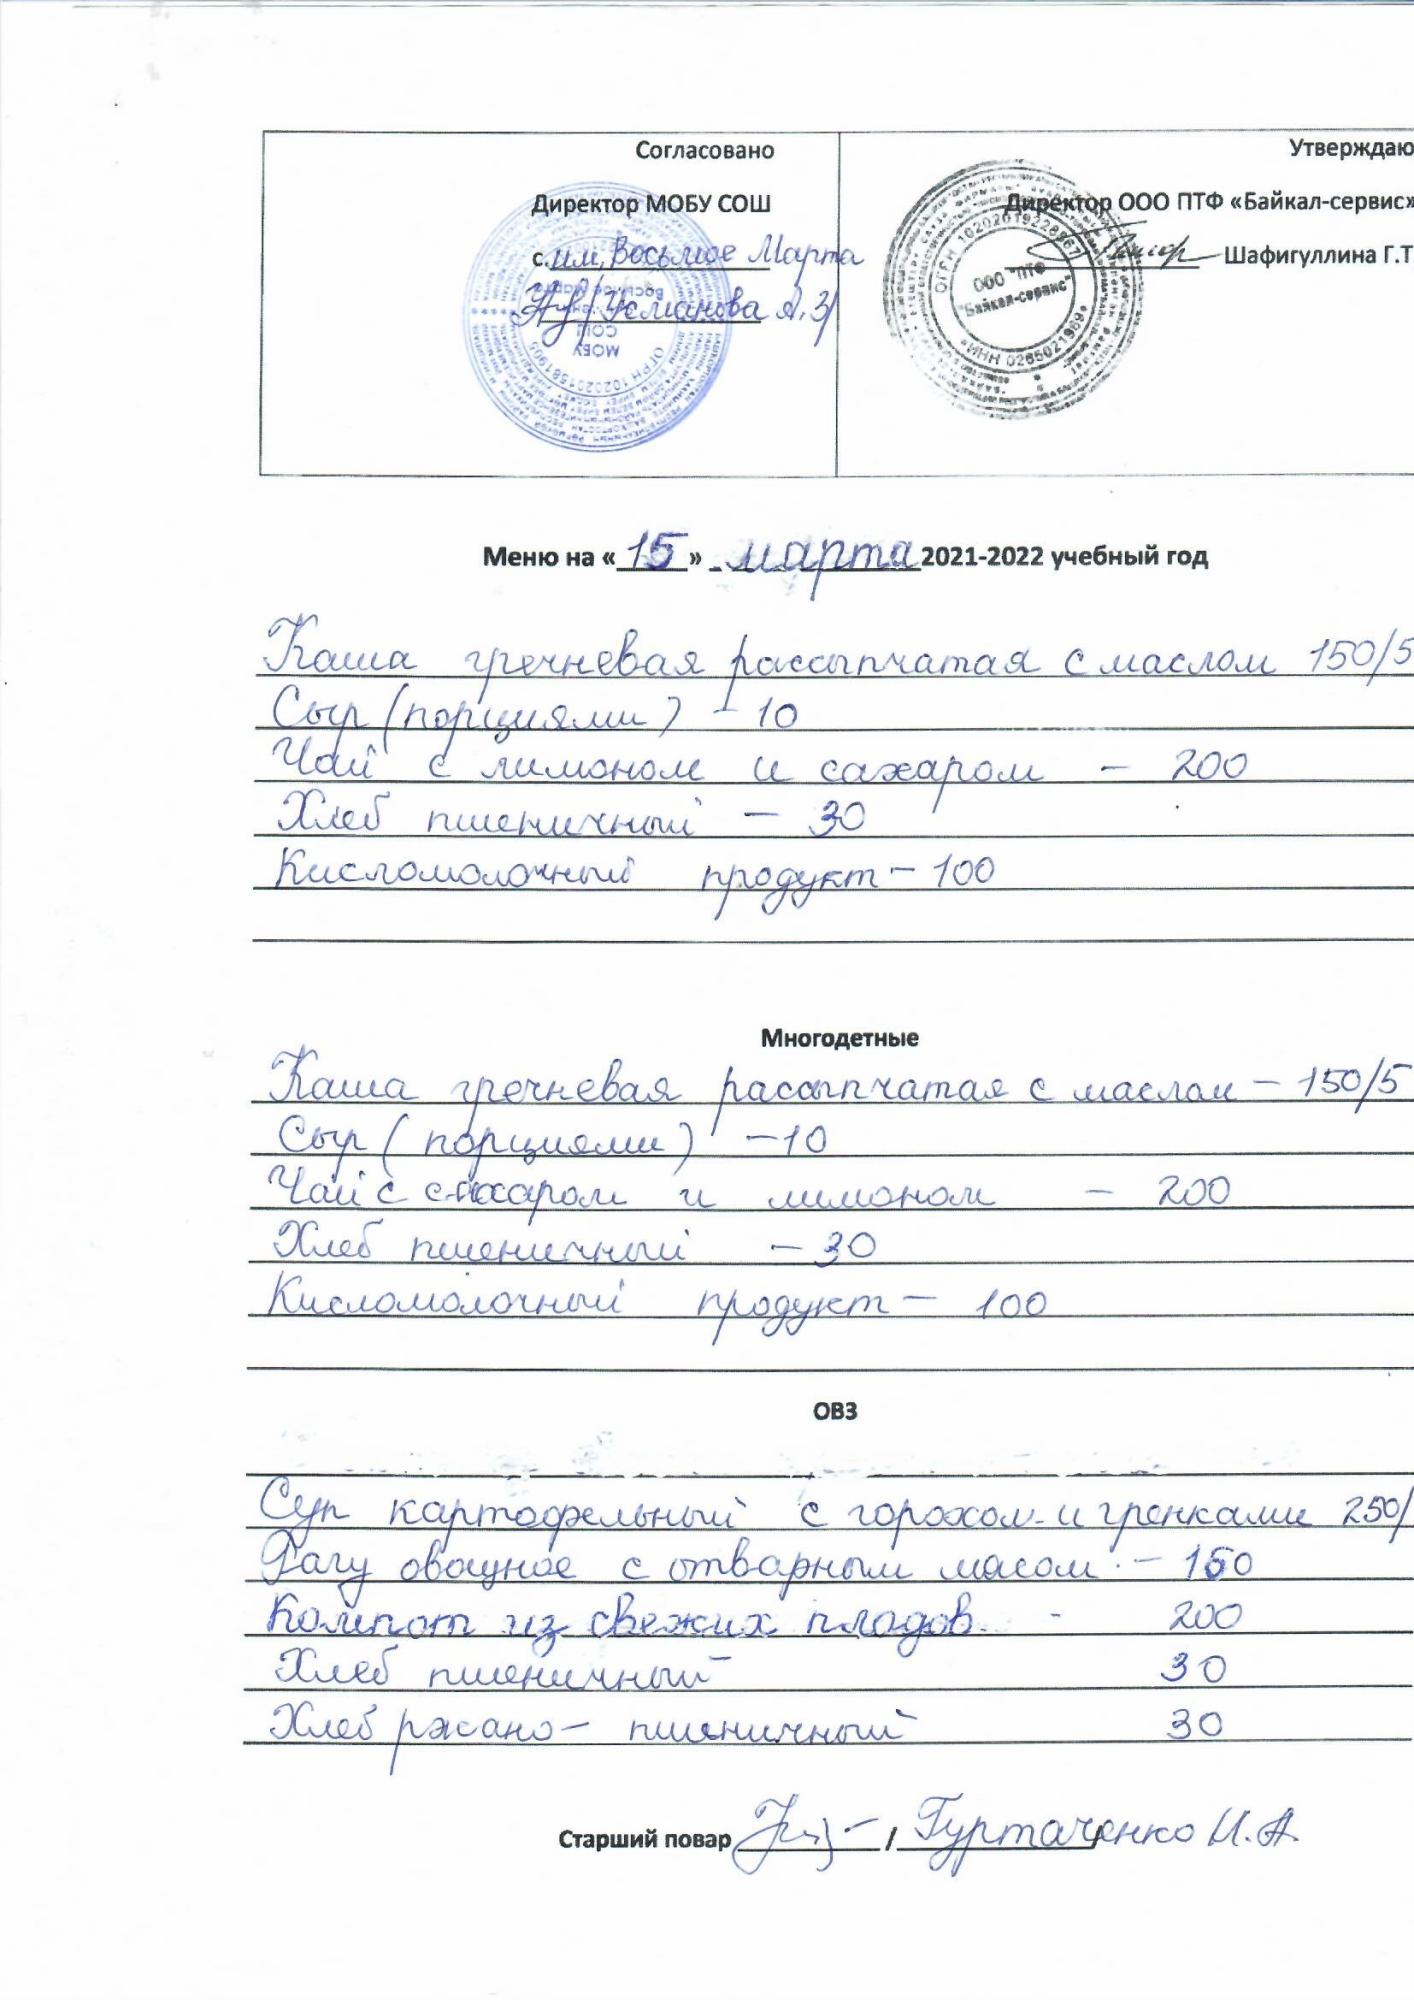 Согласовано
Директор МОБУ СОШ
с. им. Восьмое Марта
Усманова А.З
МОБУ
СОШ
ОГРН 1020201581905
Утверждаю
Директор ООО ПТФ «Байкал-сервис»
Шафигуллина Г.Т
ОГРН 1020201922
ООО "ПТФ
"Байкал-сервис"
ИНН 0265021969
Меню на «15» марта 2021-2022 учебный год
Каша гречневая рассыпчатая с маслом 150/5
Сыр (порциями) - 10
Чай с лимоном и сахаром - 200
Хлеб пшеничный - 30
Кисломолочный продукт - 100
Многодетные
Каша гречневая рассыпчатая с маслом - 150/5
Сыр (порциями) - 10
Чай с сахаром и лимоном - 200
Хлеб пшеничный - 30
Кисломолочный продукт - 100
ОВЗ
Суп картофельный с горохом и гренками 250/
Рагу овощное с отварным мясом - 150
Компот из свежих плодов - 200
Хлеб пшеничный 30
Хлеб ржано - пшеничный 30
Старший повар / Гуртаченко И.А.